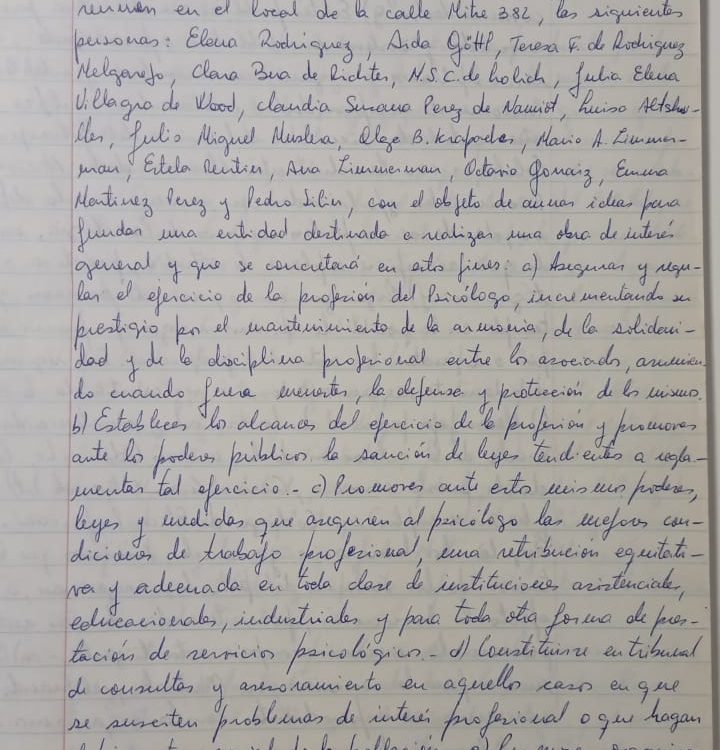 reunen en el local de la calle Mitre 382, las siguientes
personas: Elena Rodriguez, Aida Göttl, Teresa F. de Rodriguez
Melgarejo, Clara Bua de Richter, M.S.C. de Kolich, Julia Elena
Villagra de Wood, Claudia Susana Perez de Namiot, Luisa Altshu-
ller, Julio Miguel Muslera, Olga B. Krapadas, Mario A. Zimmer-
man, Estela Rentier, Ana Zimmerman, Octavio Gonaiz, Emma
Martinez Perez y Pedro Silin, con el objeto de aunar ideas para
fundar una entidad destinada a realizar una obra de interés
general y que se concretará en estos fines: a) Asegurar y regu-
lar el ejercicio de la profesión del Psicólogo, incrementando su
prestigio por el mantenimiento de la armonia, de la solidari-
dad y de la disciplina profesional entre los asociados, asumien-
do cuando fuera menester, la defensa y protección de los mismos.
b) Establecer los alcances del ejercicio de la profesión y promover
ante los poderes públicos la sanción de leyes tendientes a regla-
mentar tal ejercicio.- c) Promover ante estos mismos poderes,
leyes y medidas que aseguren al psicólogo las mejores con-
diciones de trabajo profesional, una retribución equitati-
va y adecuada en toda clase de instituciones asistenciales,
educacionales, industriales y para toda otra forma de pres-
tación de servicios psicológicos.- d) Constituirse en tribunal
de consultas y asesoramiento en aquellos casos en que
se susciten problemas de interés profesional o que hagan